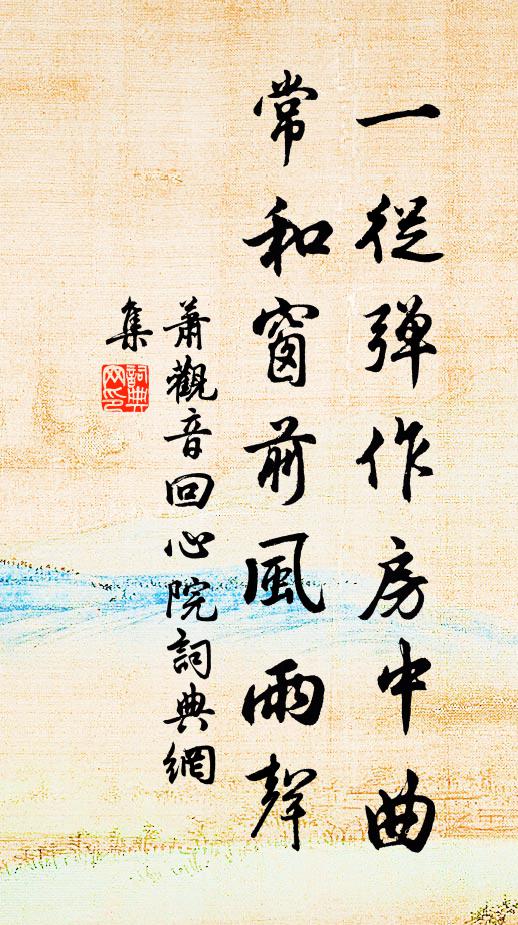 一從弹作房中曲
常和窗前風雨聲
萧觀音回心院詞典網
集
詞典
网印